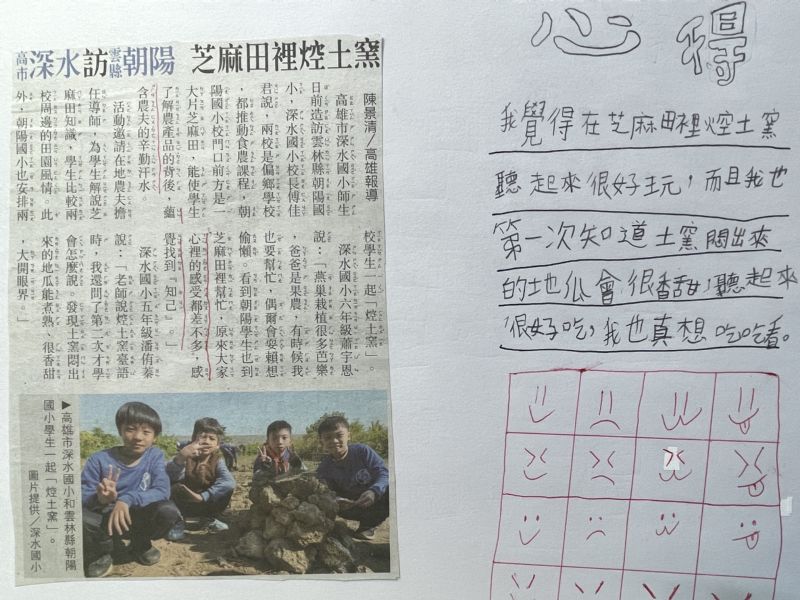 高市深水訪雲縣朝陽 芝麻田裡焢土窯
陳景清／高雄報導
高雄市深水國小師生
日前造訪雲林縣朝陽國
小，深水國小校長傅佳
君說，兩校是偏鄉學校
，都推動食農課程，朝
陽國小校門口前方是一
大片芝麻田，能使學生
了解農產品的背後，蘊
含農夫的辛勤汗水。
活動邀請在地農夫擔
任導師，為學生解說芝
麻田知識，學生比較兩
校周邊的田園風情。此
外，朝陽國小也安排兩
校學生一起「焢土窯」。
深水國小六年級蕭宇恩
說：「燕巢栽植很多芭樂
，爸爸是果農，有時候我
也要幫忙，偶爾會耍賴想
偷懶。看到朝陽學生也到
芝麻田裡幫忙，原來大家
心裡的感受都差不多，感
覺找到『知己』。」
深水國小五年級潘侑蓁
說：「老師說焢土窯臺語
時，我還問了第一次才學
會怎麼說。發現土窯悶出
來的地瓜能煮熟、很香甜
，大開眼界。」
▶高雄市深水國小和雲林縣朝陽
國小學生一起「焢土窯」。
圖片提供／深水國小
心得
我覺得在芝麻田裡焢土窯
聽起來很好玩，而且我也
第一次知道土窯悶出來
的地瓜會很香甜，聽起來
很好吃，我也真想吃吃看。